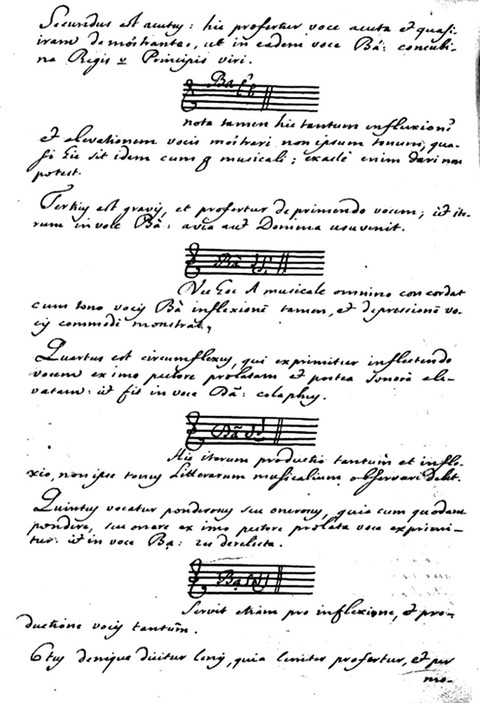 Secundus est acutus: hic profertur voce acuta et quasi
iram demõstrantes, ut in eadem voce Bá: concubi-
na Regis v Principis viri.
Bá
nota tamen hic tantum influxionẽ
et elevationem vocis mõstrari non ipsum tonum, qua-
si hic sit idem cum g musicali; exacte enim dari non
potest.
Tertius est gravis, et profertur deprimendo vocem; ut ite-
rum in voce Bà: avia aut Domina usuvenit.
Bà
Nec hoc A musicale omnino concordat
cum tono vocis Bà inflexionẽ tamen, et depressionẽ vo-
cis commodè monstrat,
Quartus est circumflexus, qui exprimitur inflectendo
vocem ex imo pectore prolatam et postea sonorè ele-
vatam: ut fit in voce Bã: colaphus.
Bã
His iterum productio tantum et infle-
xio, non ipse tonus Litterarum musicalium observari debet.
Quintus vocatur ponderosus seu onerosus, quia cum quodam
pondere, seu onere ex imo pectore prolata voce exprimi-
tur: ut in voce Bạ: res derelicta.
Bạ
Servit etiam pro inflexione, et pro-
ductione vocis tantum.
6tus denique dicitur lenis, quia leniter profertur, et per
mo-